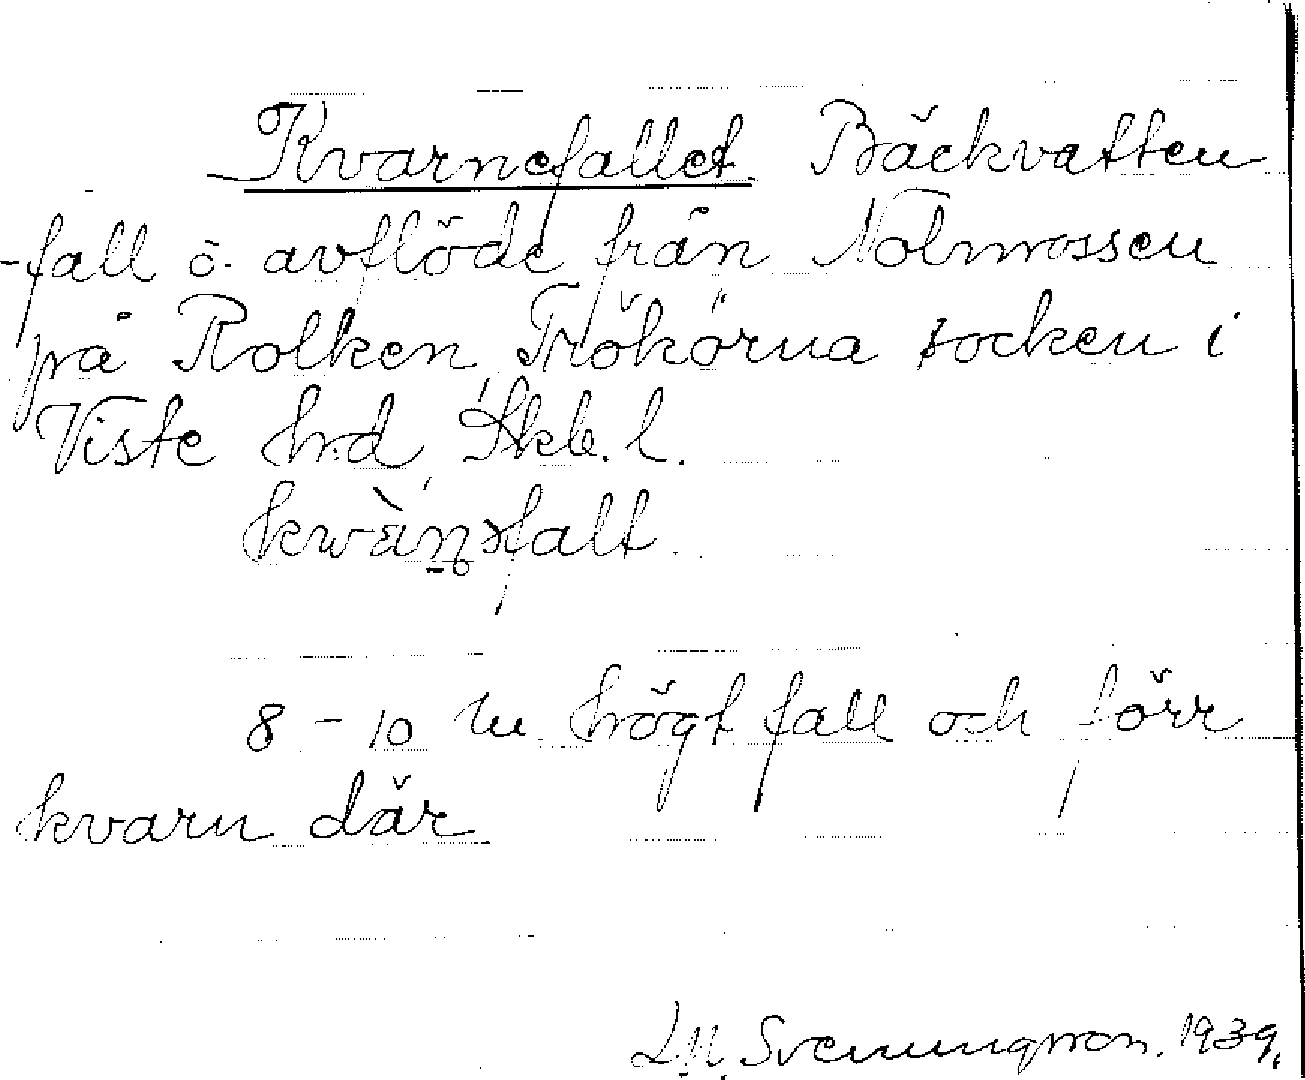 Kvarnefallet. Bäckvatten
-fall ö. avflöde från Nolmossen
på Rolken, Trökörna socken i
Viste hrd, Skb. l.
8-10 m högt fall och förr
kvarn där
L.M. Svenungsson. 1939.